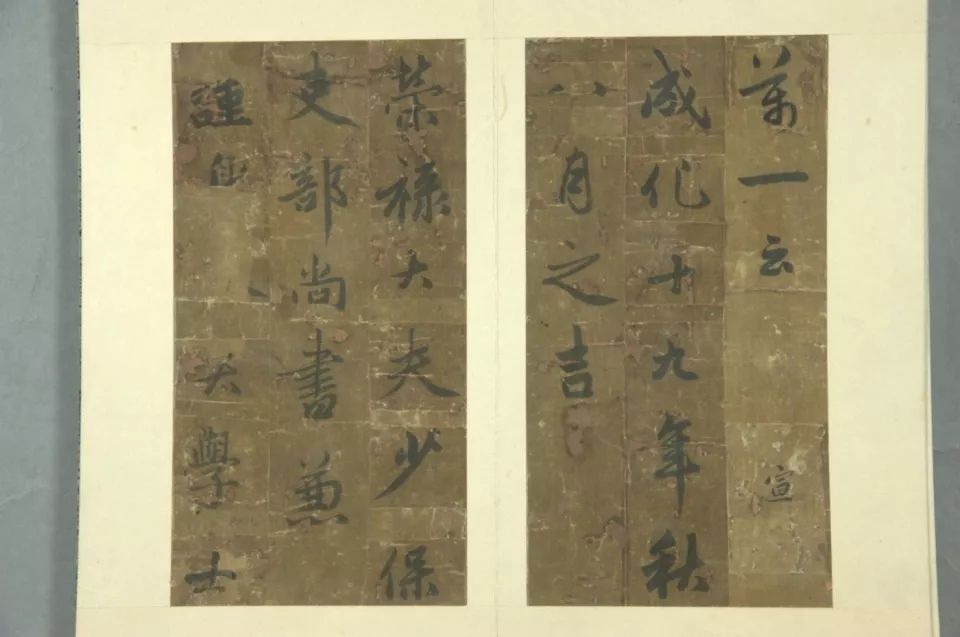 萬一云 宣
成化十九年秋
八月之吉
榮祿大夫少保
吏部尚書兼
謹身 大學士